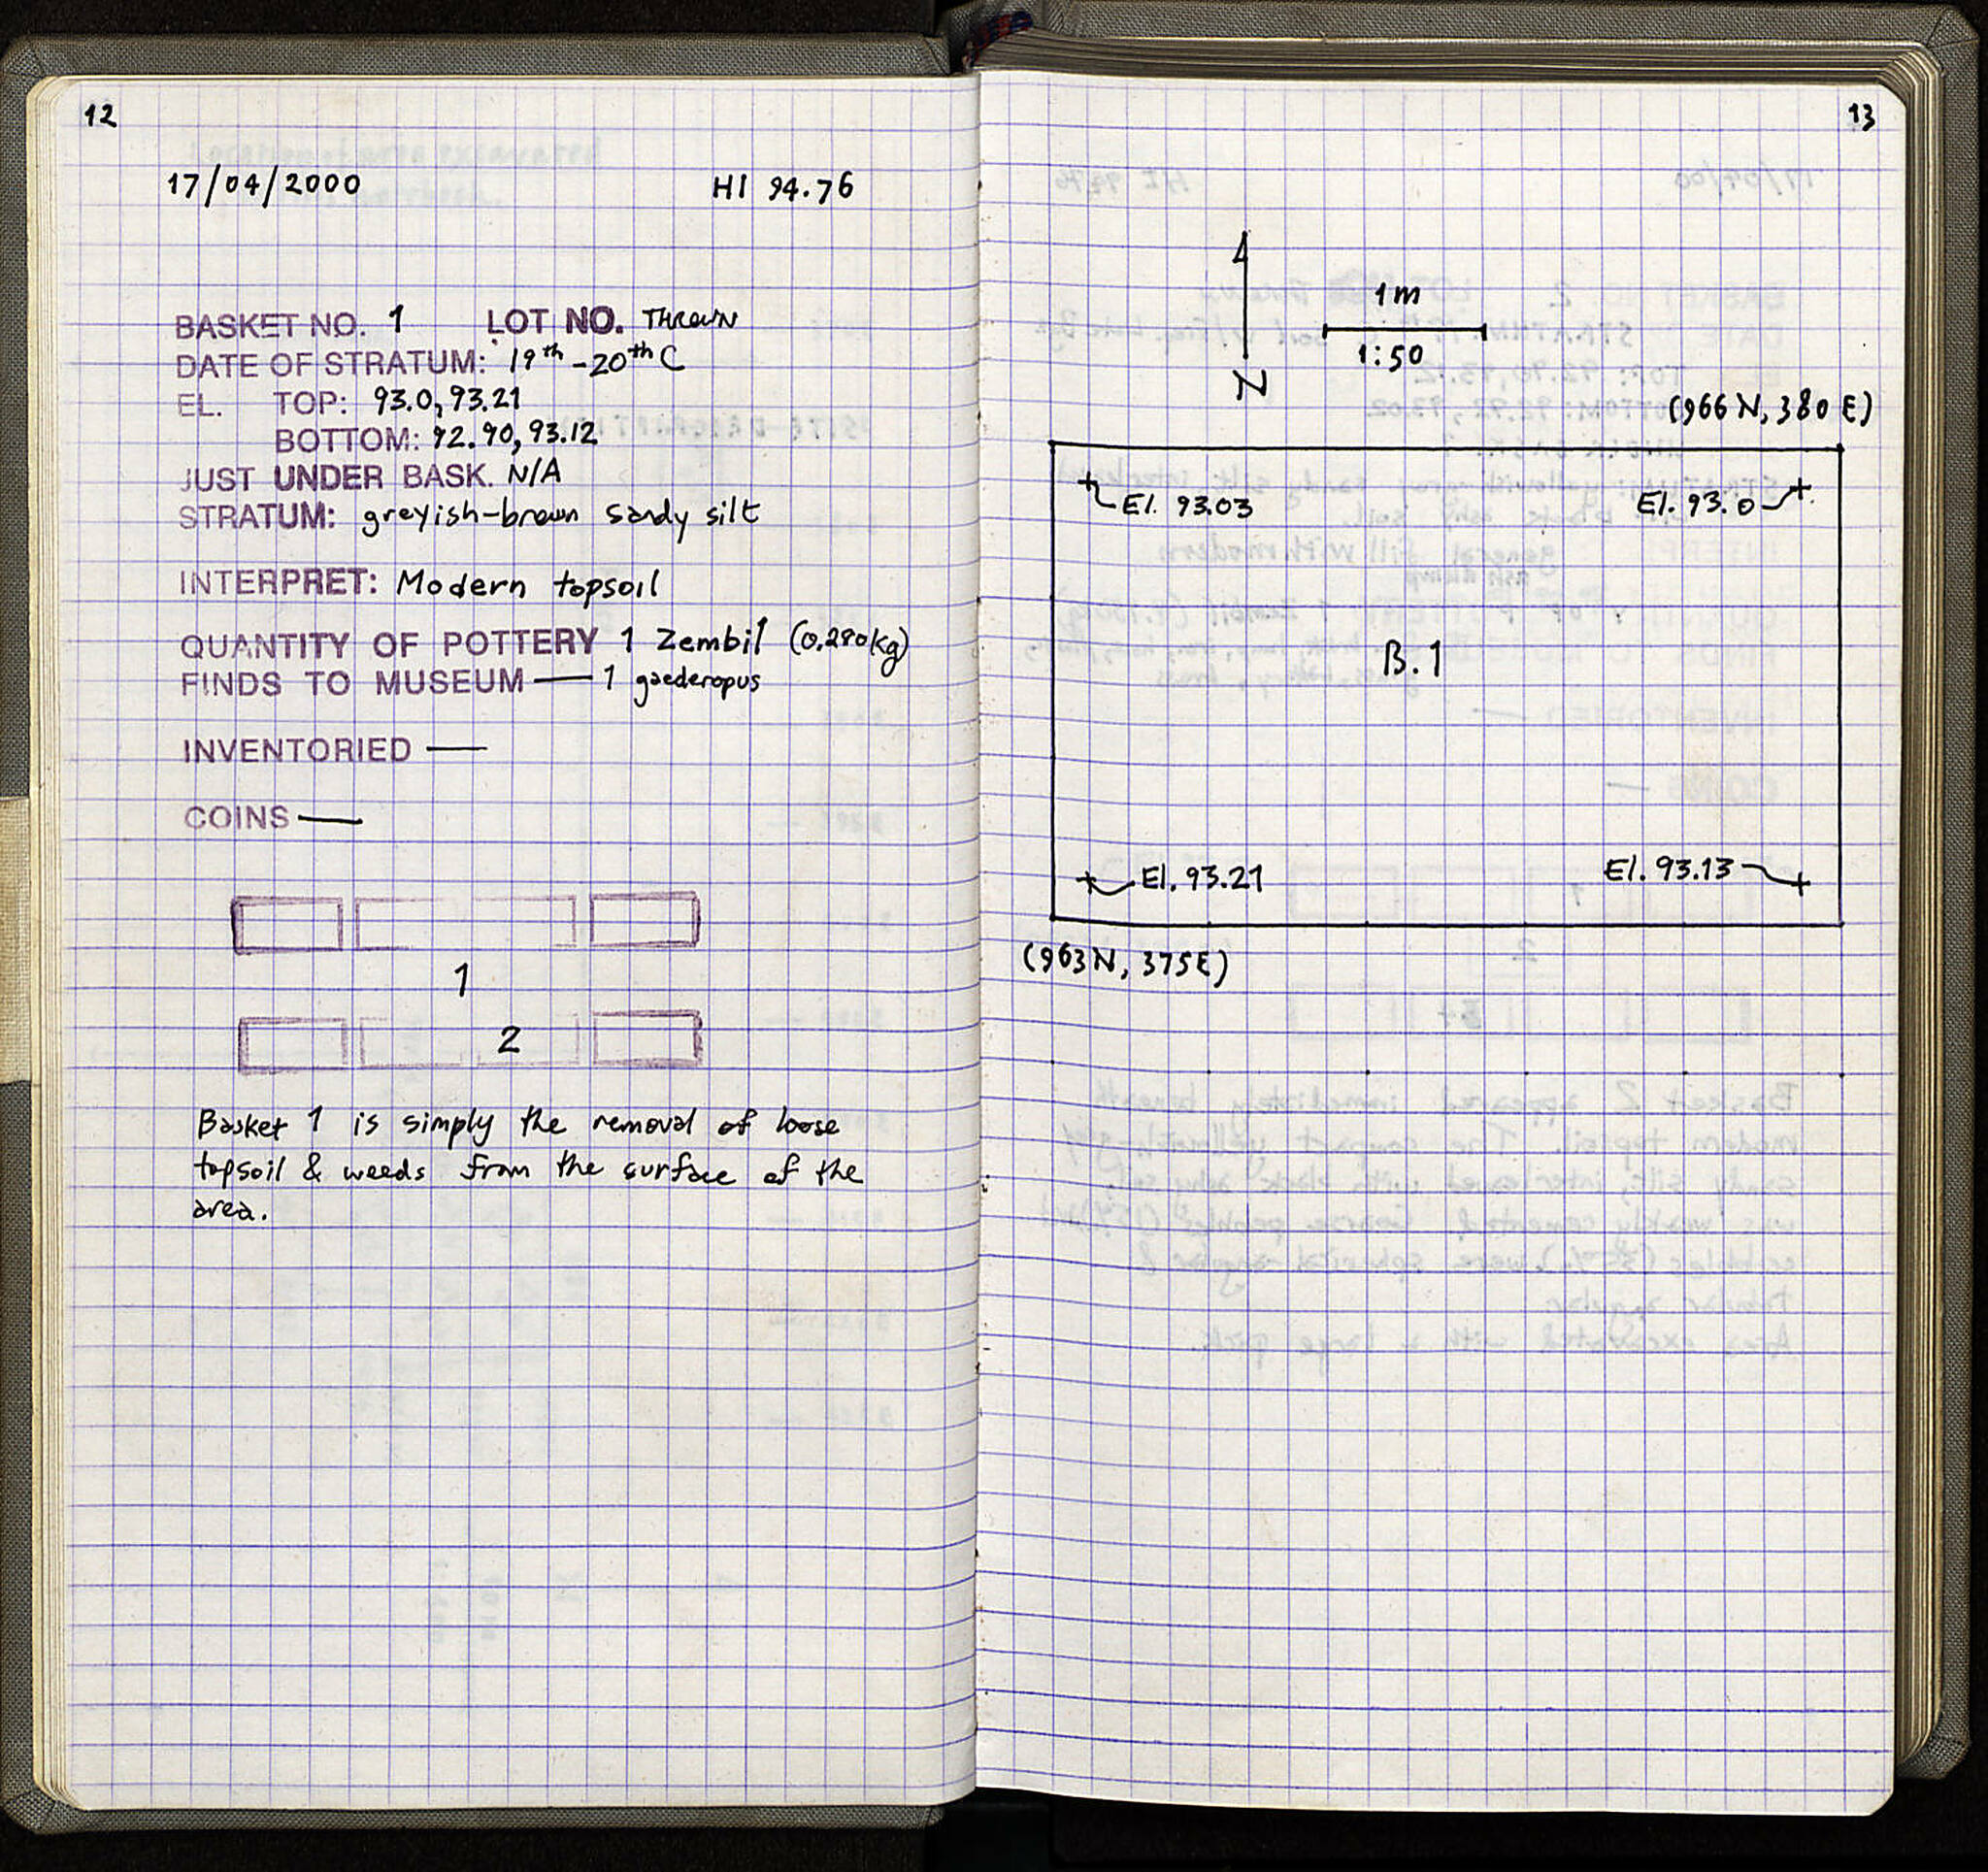 12
17/04/2000 HI 94.76
BASKET NO. 1 LOT NO. THROWN
DATE OF STRATUM: 19th-20th C
EL. TOP: 93.0, 93.21
BOTTOM: 92.90, 93.12
JUST UNDER BASK. N/A
STRATUM: greyish-brown sandy silt
INTERPRET: Modern topsoil
QUANTITY OF POTTERY 1 Zembil (0.290kg)
FINDS TO MUSEUM — 1 gaederopus
INVENTORIED —
COINS —
1
2
Basket 1 is simply the removal of loose
topsoil & weeds from the surface of the
area.
13
N
1m
1:50
(966 N, 380 E)
El. 93.03 El. 93.0
B.1
El. 93.21 El. 93.13
(963N, 375E)